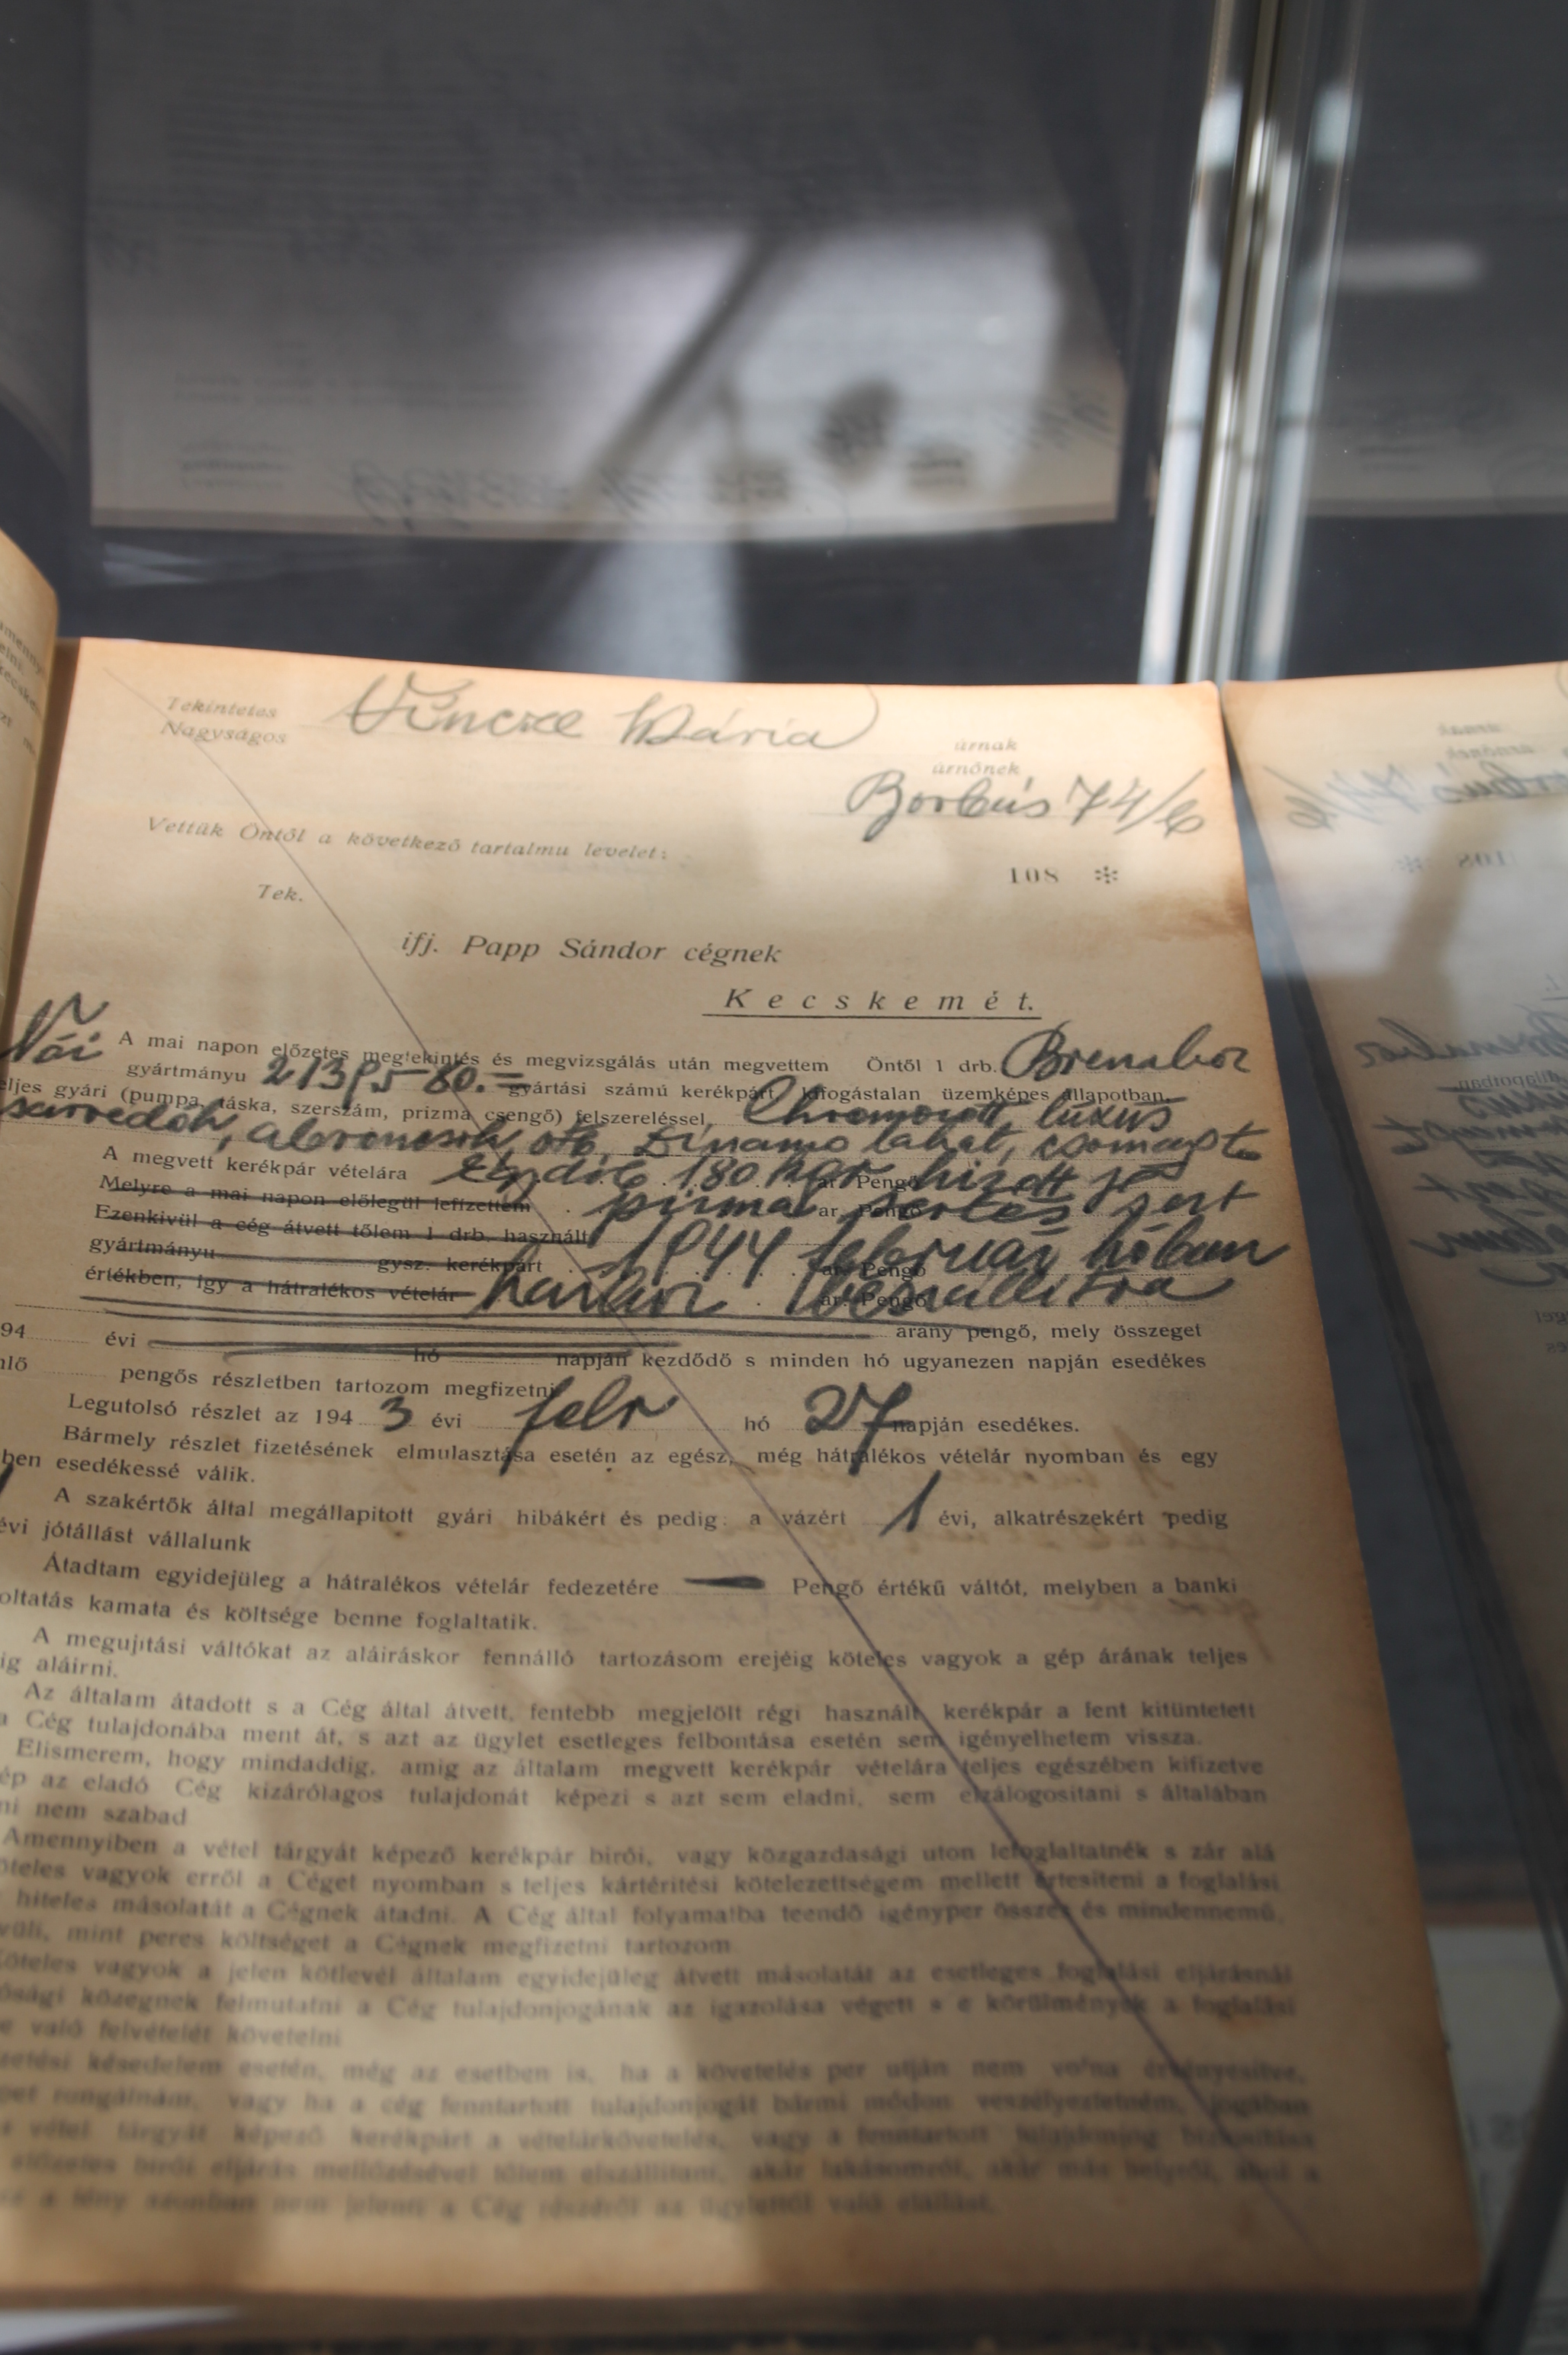 Tekintetes
Nagyságos
Vincze Mária
úrnak
úrnőnek
Borbás 74/b
Vettük Öntől a következő tartalmu levelet:
108 ✻
Tek.
ifj. Papp Sándor cégnek
Kecskemét.
Női A mai napon előzetes megtekintés és megvizsgálás után megvettem Öntől 1 drb. Brenabor
gyártmányu 80.= gyártási számú kerékpárt, kifogástalan üzemképes állapotban,
eljes gyári (pumpa, táska, szerszám, prizma csengő) felszereléssel, Chromozott, luxus
sárvedőh, abroncsok, stb, Dinamo
A megvett kerékpár vételára Egy drb 180 kgr hizott ar. Pengő
Melyre a mai napon előlegül lefizettem prima sertés ar. Pengő
Ezenkivül a cég átvett tőlem 1 drb. használt 1944 február hóban
gyártmányu gysz. kerékpárt ar. Pengő
értékben, így a hátralékos vételár ar. Pengő
arany pengő, mely összeget
94 évi hó napján kezdődő s minden hó ugyanezen napján esedékes
nlő pengős részletben tartozom megfizetni
Legutolsó részlet az 194 3 évi febr hó 27 napján esedékes.
Bármely részlet fizetésének elmulasztása esetén az egész, még hátralékos vételár nyomban és egy
ben esedékessé válik.
A szakértők által megállapitott gyári hibákért és pedig: a vázért 1 évi, alkatrészekért pedig
évi jótállást vállalunk
Átadtam egyidejüleg a hátralékos vételár fedezetére — Pengő értékű váltót, melyben a banki
oltatás kamata és költsége benne foglaltatik.
A megujitási váltókat az aláiráskor fennálló tartozásom erejéig köteles vagyok a gép árának teljes
ig aláirni.
Az általam átadott s a Cég által átvett, fentebb megjelölt régi használt kerékpár a fent kitüntetett
a Cég tulajdonába ment át, s azt az ügylet esetleges felbontása esetén sem igényelhetem vissza.
Elismerem, hogy mindaddig, amig az általam megvett kerékpár vételára teljes egészében kifizetve
ép az eladó Cég kizárólagos tulajdonát képezi s azt sem eladni, sem elzálogositani s általában
ni nem szabad
Amennyiben a vétel tárgyát képező kerékpár birói, vagy közgazdasági uton lefoglaltatnék s zár alá
öteles vagyok erről a Céget nyomban s teljes kártéritési kötelezettségem mellett értesíteni a foglalási
hiteles másolatát a Cégnek átadni. A Cég által folyamatba teendő igényper összes és mindennemű,
vüli, mint peres költséget a Cégnek megfizetni tartozom
Köteles vagyok a jelen kötlevél általam egyidejüleg átvett másolatát az esetleges foglalási eljárásnál
ósági közegnek felmutatni a Cég tulajdonjogának az igazolása végett s e körülmények a foglalási
e való felvételét követelni
zetési késedelem esetén, még az esetben is, ha a követelés per utján nem volna érvényesitve,
pet rongálnám, vagy ha a cég fenntartott tulajdonjogát bármi módon veszélyeztetném, jogában
vétel tárgyát képező kerékpárt a vételárkövetelés, vagy a fenntartott tulajdonjog biztositása
előzetes birói eljárás mellőzésével tőlem elszállitani, akár lakásomról, akár más helyről, ahol a
ez a tény azonban nem jelenti a Cég részéről az ügylettől való elállást.